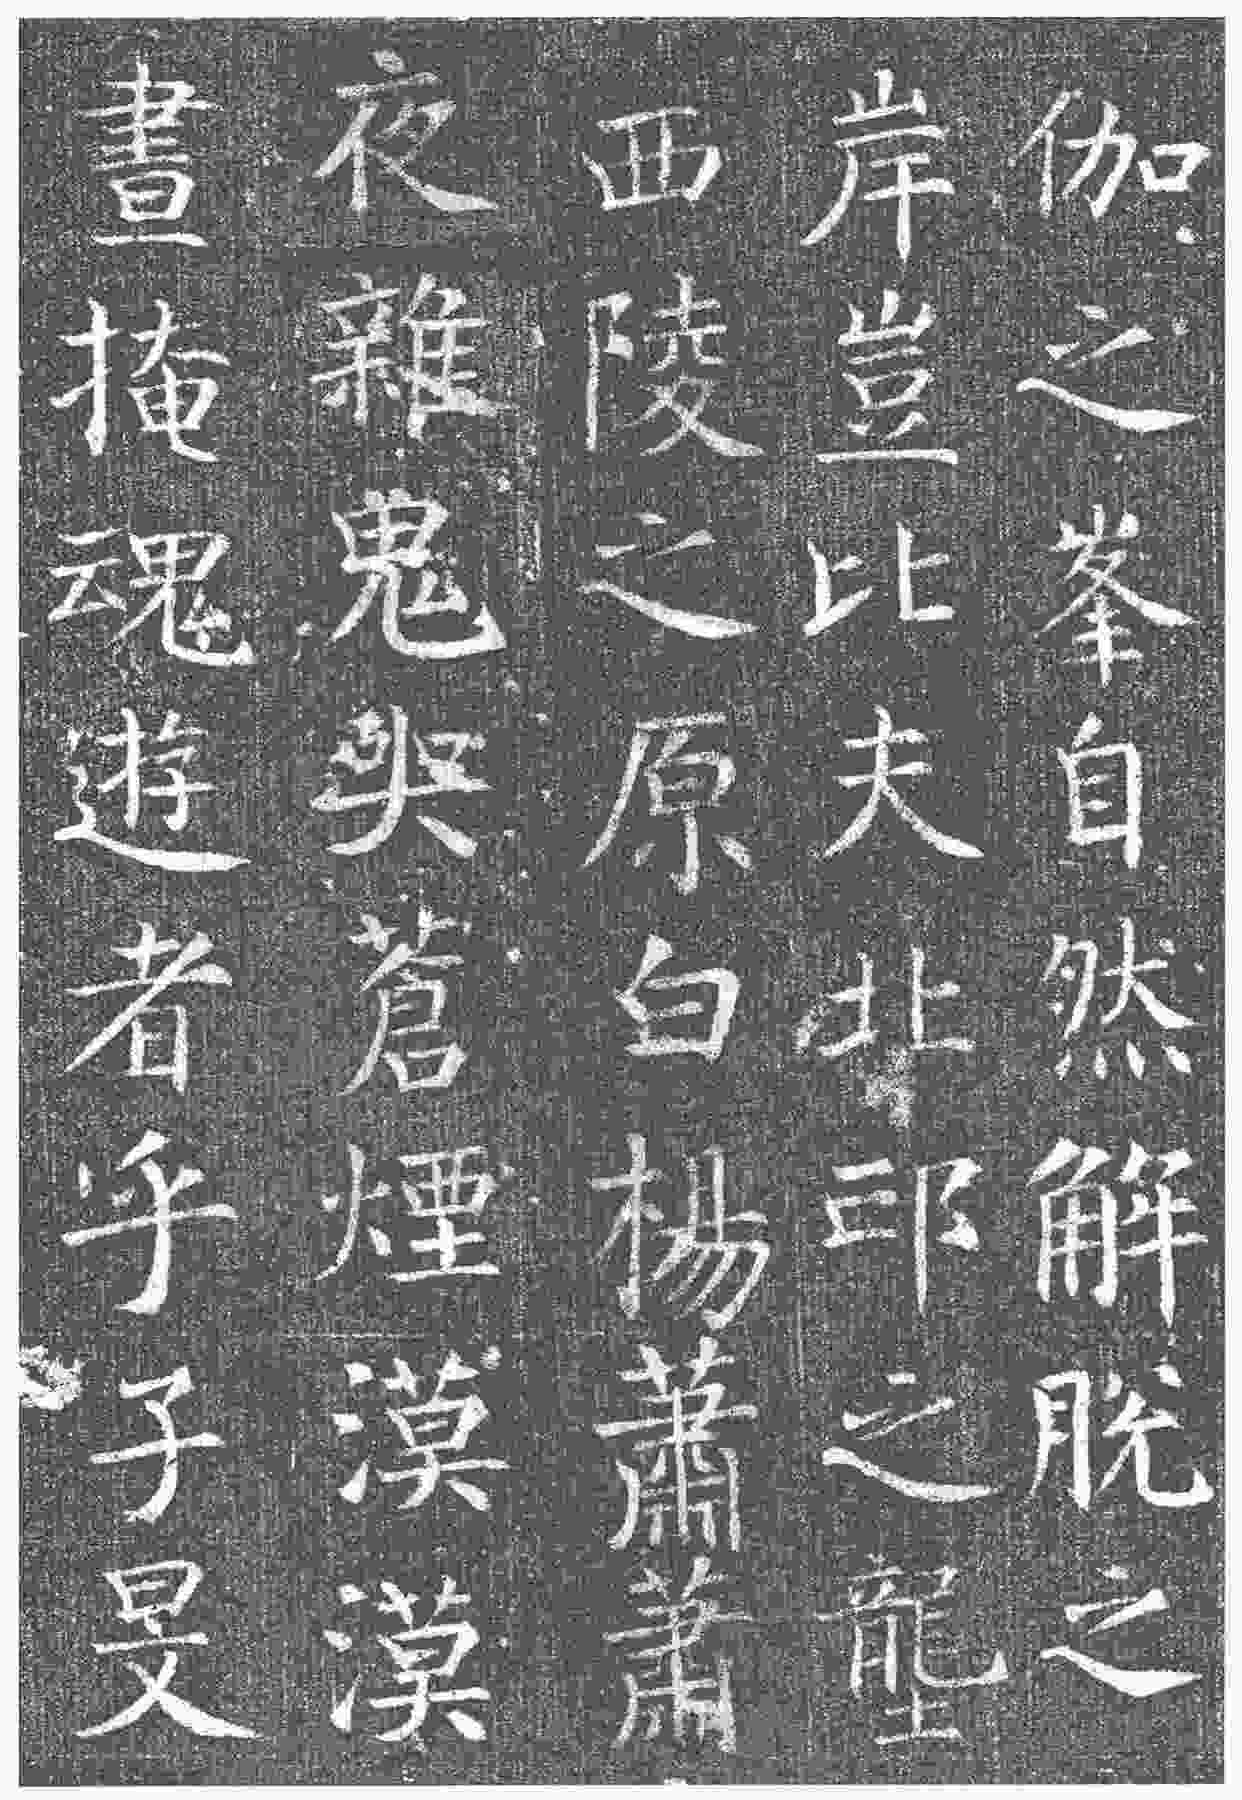 伽之峯自然解脱之
岸豈比夫北邙之壟
西陵之原白楊蕭蕭
夜雜鬼哭蒼煙漠漠
晝掩魂遊者乎子旻